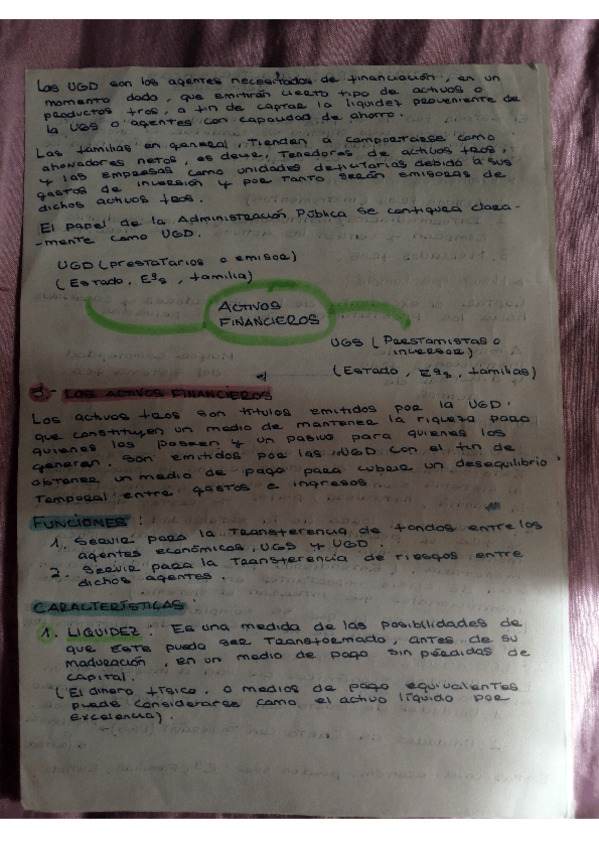 Las UGD son los agentes necesitados de financiación, en un
momento dado, que emitirán cierto tipo de activos o
productos fros, a fin de captar la liquidez proveniente de
la UGS o agentes con capacidad de ahorro.
Las familias en general, tienden a comportarse como
ahorradores netos, es decir, tenedores de activos fros,
y las empresas como unidades deficitarias debido a sus
gastos de inversión y por tanto serán emisoras de
dichos activos fros.
El papel de la Administración Pública se configura clara-
-mente como UGD.
UGD (prestatarios o emisor)
(Estado, Eªs, familia)
ACTIVOS
FINANCIEROS
UGS (Prestamistas o
inversor)
(Estado, Eªs, familias)
3- LOS ACTIVOS FINANCIEROS
Los activos fros son títulos emitidos por la UGD,
que constituyen un medio de mantener la riqueza para
quienes los poseen y un pasivo para quienes los
generan. Son emitidos por las UGD con el fin de
obtener un medio de pago para cubrir un desequilibrio
temporal entre gastos e ingresos
FUNCIONES:
1. Servir para la transferencia de fondos entre los
agentes económicos, UGS y UGD.
2. Servir para la transferencia de riesgos entre
dichos agentes.
CARACTERÍSTICAS
1. LIQUIDEZ: Es una medida de las posibilidades de
que este pueda ser transformado, antes de su
maduración, en un medio de pago sin pérdidas de
capital.
(El dinero físico, o medios de pago equivalentes
puede considerarse como el activo líquido por
excelencia).